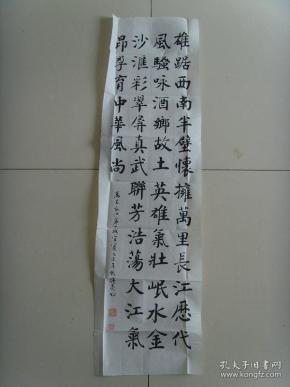 雄踞西南半壁懷擁萬里長江歷代
風騷咏酒鄉故土英雄氣壯岷水金
沙滙彩翠屏真武聯芳浩蕩大江氣
昂孕育中華風尚
孔夫子旧书网